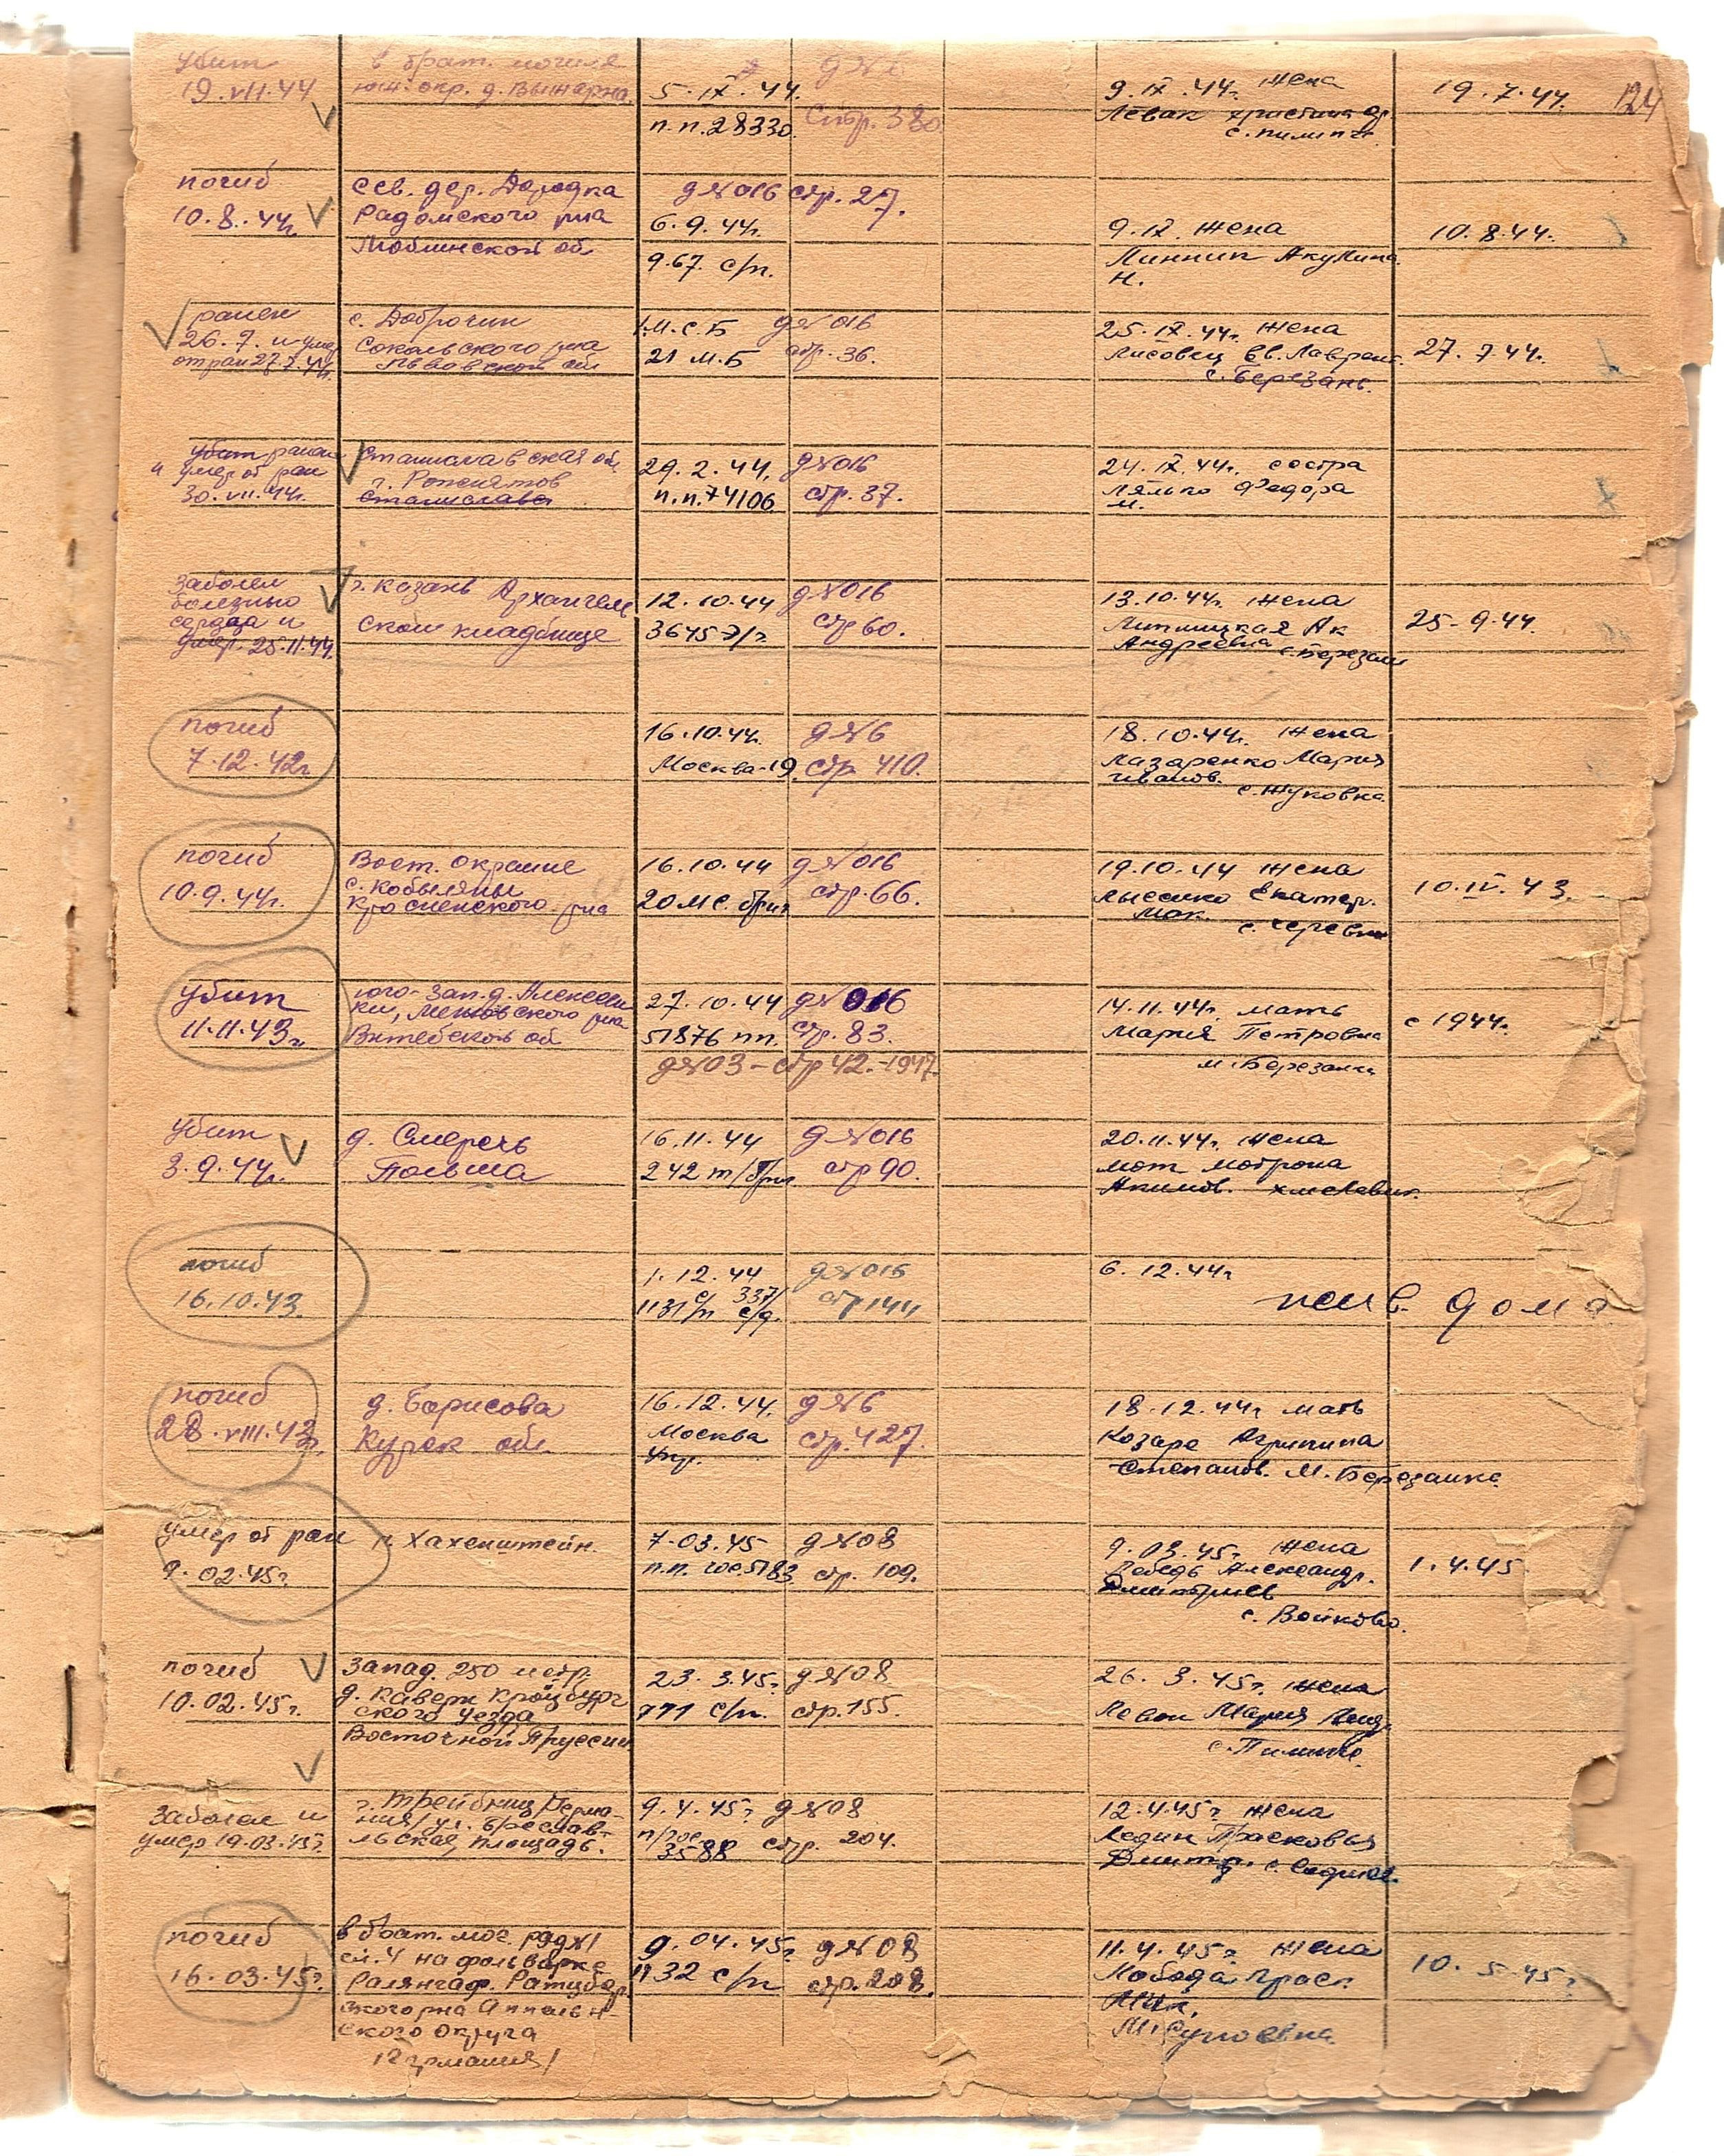 убит
19.VII.44
в брат. могиле
юж. окр. д.
5.IX.44.
п.п.28330.
д№6
Стр. 380.
9.IX.44г. жена
Левак Христина
19.7.44.
124
погиб
10.8.44г.
сев. дер.
Радомского р-на
Люблинской об.
д№016 стр. 27.
6.9.44г.
967. с/п.
9.IX. жена
Линник Акулина
Н.
10.8.44.
ранен
26.7. и умер
от ран 27.7.44г.
с. Доброчин
Сокальского р-на
Львовской об.
1М.С.Б
21 М.Б
д№016
стр. 36.
25.IX.44г. жена
Лисовец Ев. Лаврент.
с. Березань.
27.7.44г.
убит ранен
и умер от ран
30.VII.44г.
Станиславская об.
г. Рожнятов
Станислава
29.2.44.
п.п.74106
д№016
стр. 37.
24.IX.44г. сестра
Лялько Федора
М.
заболел
болезнью
сердца и
умер. 25.11.44.
г. Казань Архангель
ском кладбище
12.10.44
3645 э/г
д№016
стр 60.
13.10.44г. жена
Липницкая Ак
Андреевна с. Березань
25-9.44.
погиб
7.12.42г
16.10.44г.
Москва-19
д№6
стр. 410.
18.10.44г. жена
Лазаренко Мария
Иванов.
с. Жуковка
погиб
10.9.44г.
Вост. окраине
с. Кобыляны
Кросненского р-на
16.10.44
20 МС. бриг
д№016
стр. 66.
19.10.44 жена
Лысенко Екатер.
Мак.
10.IV.43.
убит
11.11.43г
юго-зап. д. Алексеен
ки, р-на
Витебской об
27.10.44
51876 пп.
д№016
стр. 83.
д№03-стр 42.-1947.
14.11.44г. мать
Мария Петровна
м. Березанка
с 1944г.
убит
3.9.44г.
д. Смеречь
Польша
16.11.44
242 т/бриг.
д№016
стр 90.
20.11.44г. жена
Мот Мотрона
Акимов.
погиб
16.10.43.
1.12.44
1131 с/п 337/с/д.
д№016
стр 144
6.12.44г
жив. дома
погиб
28.VIII.43г.
д. Борисова
Курск. об.
16.12.44.
Москва
Упр.
д№6
стр. 427.
18.12.44г мать
Козаре Агрипина
Степанов. М. Березанка
умер от ран
9.02.45г.
н. Хахенштейн.
7-03.45
п.п. гос.5183
д№08
стр. 109.
9.03.45г. жена
Лебедь Александр.
Дмитриев
с. Войково.
1.4.45
погиб
10.02.45г.
Запад. 250 метр.
д. Каверн Кройцбург
ского уезда
Восточной Пруссии
23.3.45г.
771 с/п.
д№08
стр. 155.
26.3.45г. жена
Левон Мария
заболел и
умер 19.03.45г.
г. Трейбниц /Герма-
ния/ ул. Бреслав-
льская, площадь.
9.4.45г
п/гос
3588
д№08
стр. 204.
12.4.45г жена
Ледин Прасковья
Дмитр.
погиб
16.03.45г.
в брат. мог. ряд №1
сл. 4 на фольварке
Ралянгаф. Ратибор.
ского р-на Аппельн-
ского округа
/Германия/
9.04.45г
1932 с/п
д№08
стр. 208.
11.4.45г жена
Лобода Прас.
Мак.
10.5.45г